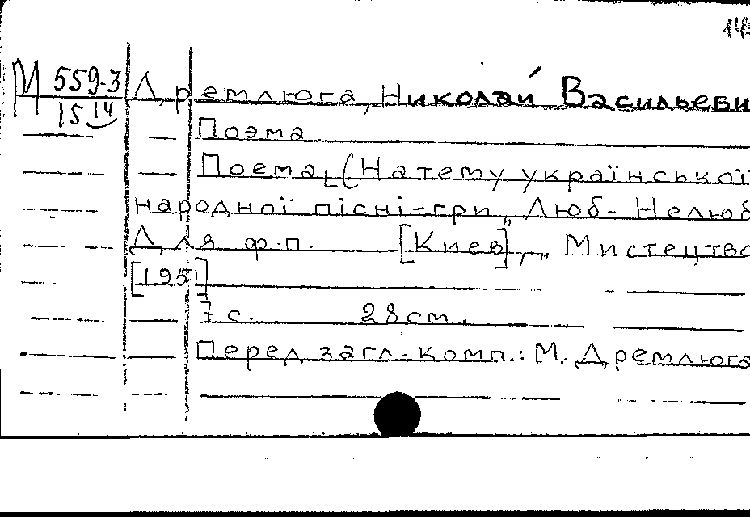 М 559-3
15 14
Дремлюга, Николай Васильеви
Поэма
Поема, (На тему української
народної пісні-гри „Люб-Нелюб
Для ф.п. [Киев], „Мистецтво
[195]
7 с. 28 см.
Перед загл. комп.: М. Дремлюга